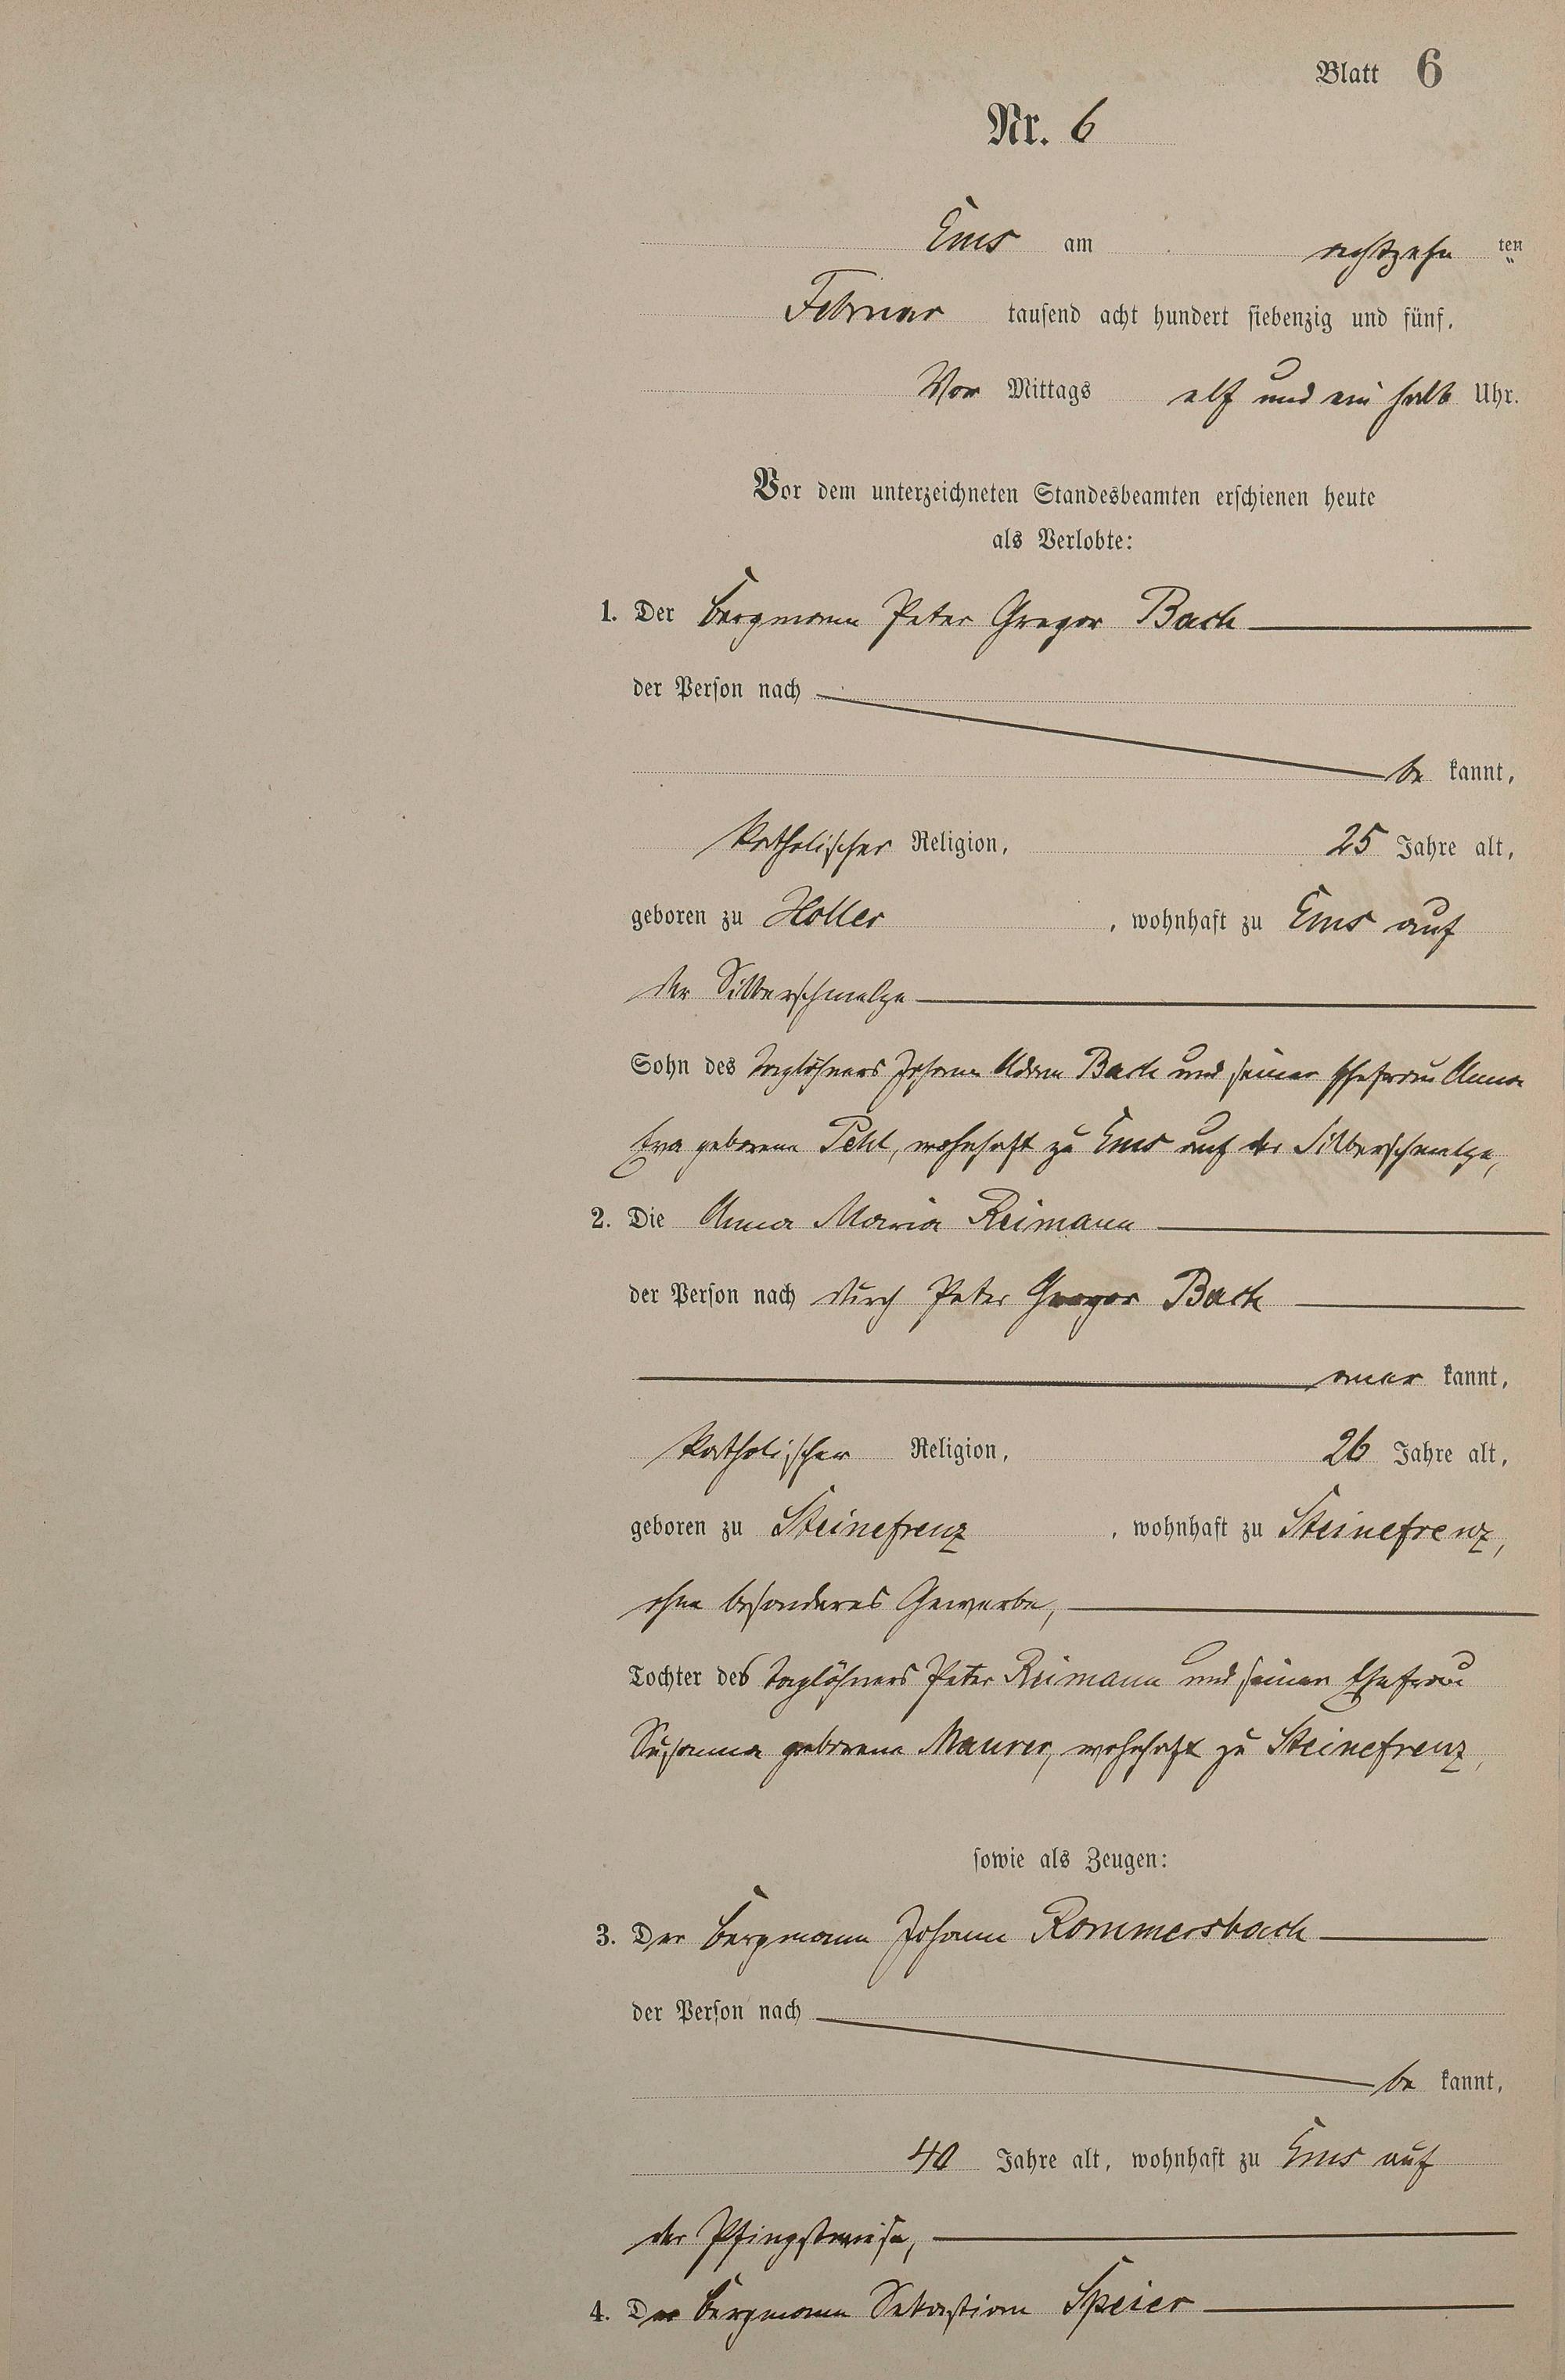 Blatt 6
Nr. 6
Ems am achtzehn ten
Februar tausend acht hundert siebenzig und fünf,
Vor Mittags elf und ein halb Uhr.
Vor dem unterzeichneten Standesbeamten erschienen heute
als Verlobte:
1. Der Bergmann Peter Gregor Bach
der Person nach
be kannt,
katholischer Religion, 25 Jahre alt,
geboren zu Holler, wohnhaft zu Ems auf
der Silberschmelze
Sohn des Taglöhners Johann Adam Bach und seiner Ehefrau Anna
Eva geborene Pehl, wohnhaft zu Ems auf der Silberschmelze,
2. Die Anna Maria Reimann
der Person nach durch Peter Gregor Bach
aner kannt,
katholischer Religion, 26 Jahre alt,
geboren zu Steinefrenz, wohnhaft zu Steinefrenz,
ohne besonderes Gewerbe,
Tochter des Taglöhners Peter Reimann und seiner Ehefrau
Susanna geborene Maurer, wohnhaft zu Steinefrenz,
sowie als Zeugen:
3. Der Bergmann Johann Rommersbach
der Person nach
be kannt,
40 Jahre alt, wohnhaft zu Ems auf
der Pfingstweise,
4. Der Bergmann Sebastian Speier